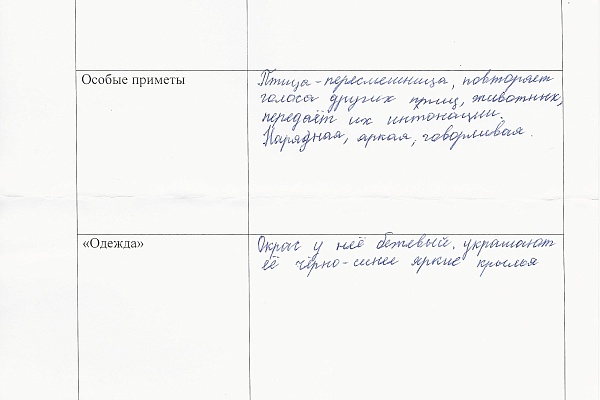 Особые приметы
Птица-пересмешница, повторяет
голоса других птиц, животных,
передаёт их интонации.
Нарядная, яркая, говорливая.
«Одежда»
Окрас у неё бежевый. украшают
её чёрно-синее яркие крылья